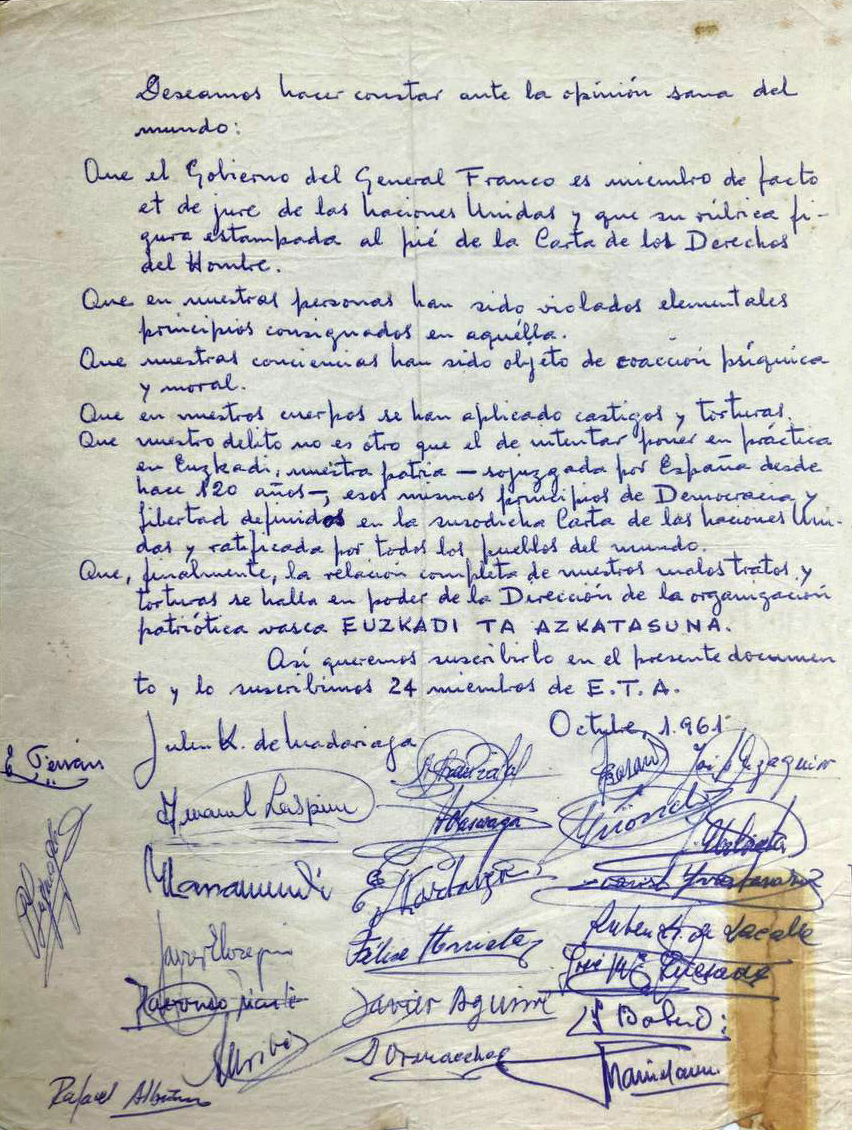 Deseamos hacer constar ante la opinión sana del
mundo:
Que el Gobierno del General Franco es miembro de facto
et de jure de las naciones Unidas y que su rúbrica fi-
gura estampada al pié de la Carta de los Derechos
del Hombre.
Que en nuestras personas han sido violados elementales
principios consignados en aquélla.
Que nuestras conciencias han sido objeto de coacción psíquica
y moral.
Que en nuestros cuerpos se han aplicado castigos y torturas.
Que nuestro delito no es otro que el de intentar poner en práctica
en Euzkadi, nuestra patria – sojuzgada por España desde
hace 120 años –, esos mismos principios de Democracia y
libertad definidos en la susodicha Carta de las naciones Uni-
das y ratificada por todos los pueblos del mundo.
Que, finalmente, la relación completa de nuestros malos tratos y
torturas se halla en poder de la Dirección de la organización
patriótica vasca EUZKADI TA AZKATASUNA.
Así queremos suscribirlo en el presente documen
to y lo suscribimos 24 miembros de E.T.A.
Octubre, 1.961
Julen K. de Madariaga
E Terrán
Manuel Laspiur
Félix Arrieta
Ruben L. de Lacalle
José Mª Quesada
Javier Elosegui
Javier Aguirre
Rafael Albisu